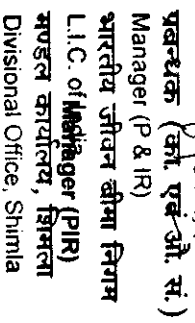 प्रबन्धक (का. एवं औ. सं.)
Manager (P & IR)
भारतीय जीवन बीमा निगम
L.I.C. of India
Manager (PIR)
मण्डल कार्यालय, शिमला
Divisional Office, Shimla